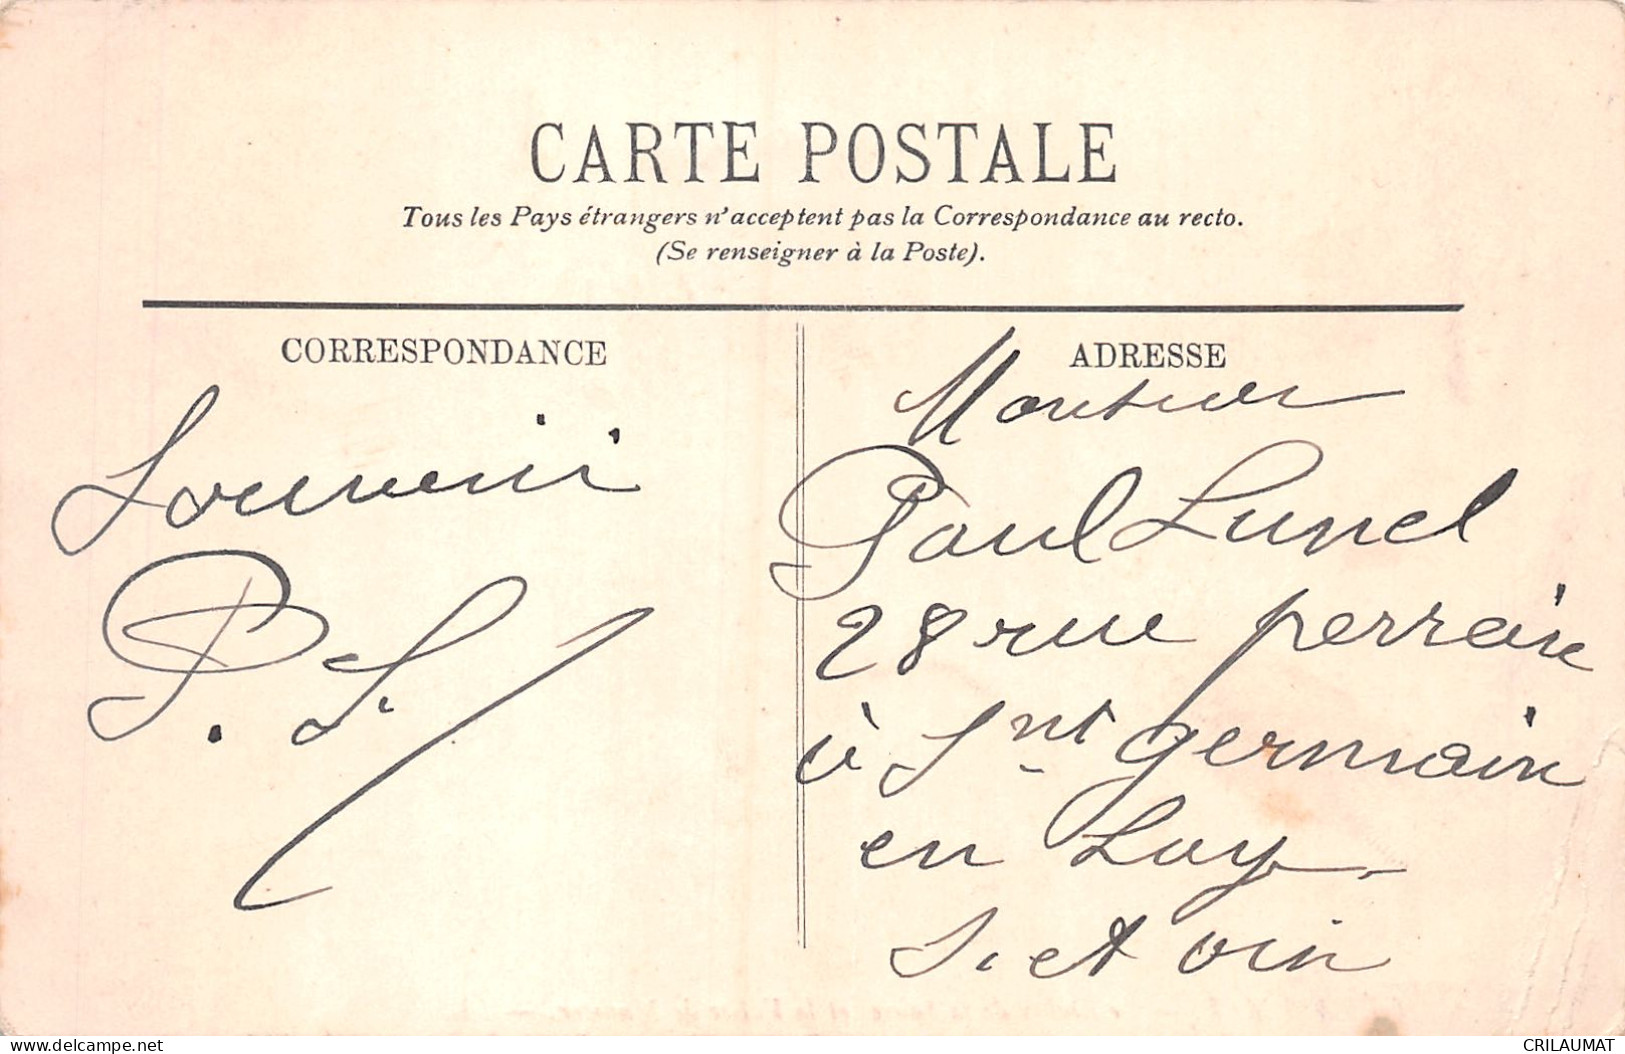 CARTE POSTALE
Tous les Pays étrangers n'acceptent pas la Correspondance au recto.
(Se renseigner à la Poste).
CORRESPONDANCE
Souvenir
P. L.
ADRESSE
Monsieur
Paul Lunel
28 rue perrain
à Snt germain
en Lay
S. et oin
delcampe.net
CRILAUMAT